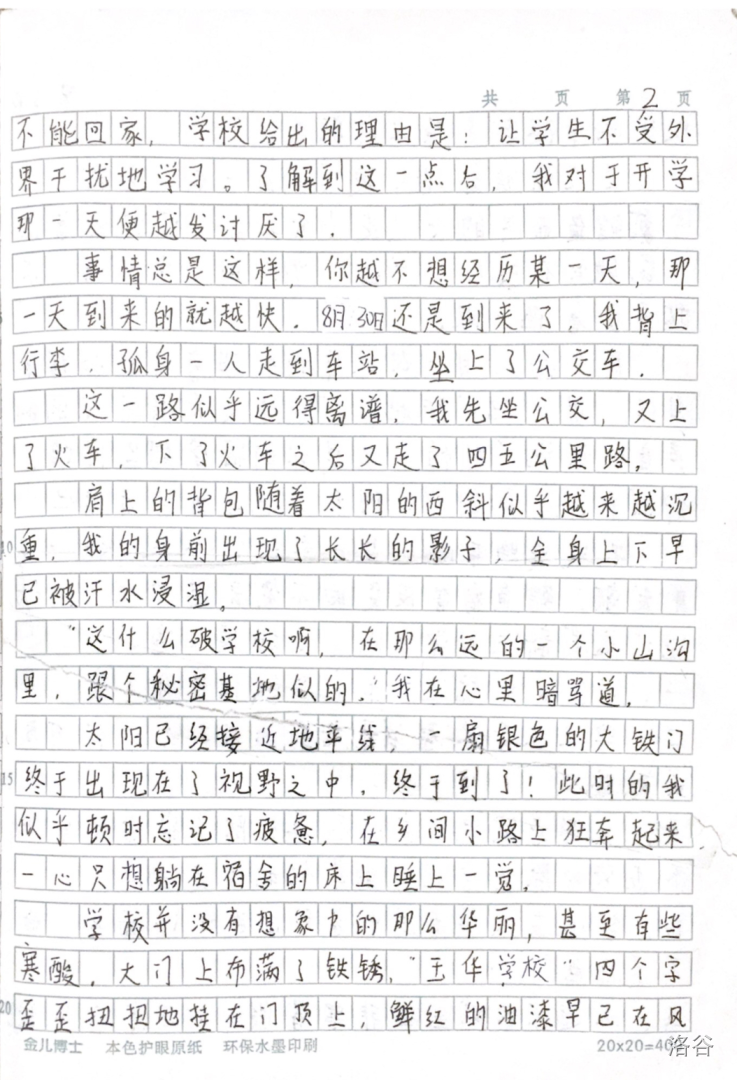 共 页 第2页
不能回家，学校给出的理由是：让学生不受外
界干扰地学习。了解到这一点后，我对于开学
那一天便越发讨厌了．
事情总是这样，你越不想经历某一天，那
一天到来的就越快．8月30日还是到来了，我背上
行李．孤身一人走到车站，坐上了公交车．
这一路似乎远得离谱，我先坐公交，又上
了火车，下了火车之后又走了四五公里路。
肩上的背包随着太阳的西斜似乎越来越沉
重，我的身前出现了长长的影子，全身上下早
已被汗水浸湿。
“这什么破学校啊，在那么远的一个小山沟
里，跟个秘密基地似的．”我在心里暗骂道，
太阳已经接近地平线，一扇银色的大铁门
终于出现在了视野之中．终于到了！此时的我
似乎顿时忘记了疲惫，在乡间小路上狂奔起来
一心只想躺在宿舍的床上睡上一觉．
学校并没有想象中的那么华丽，甚至有些
寒酸，大门上布满了铁锈，“玉华学校”四个字
歪歪扭扭地挂在门顶上，鲜红的油漆早已在风
10
15
20
金儿博士 本色护眼原纸 环保水墨印刷 20x20=40
洛谷